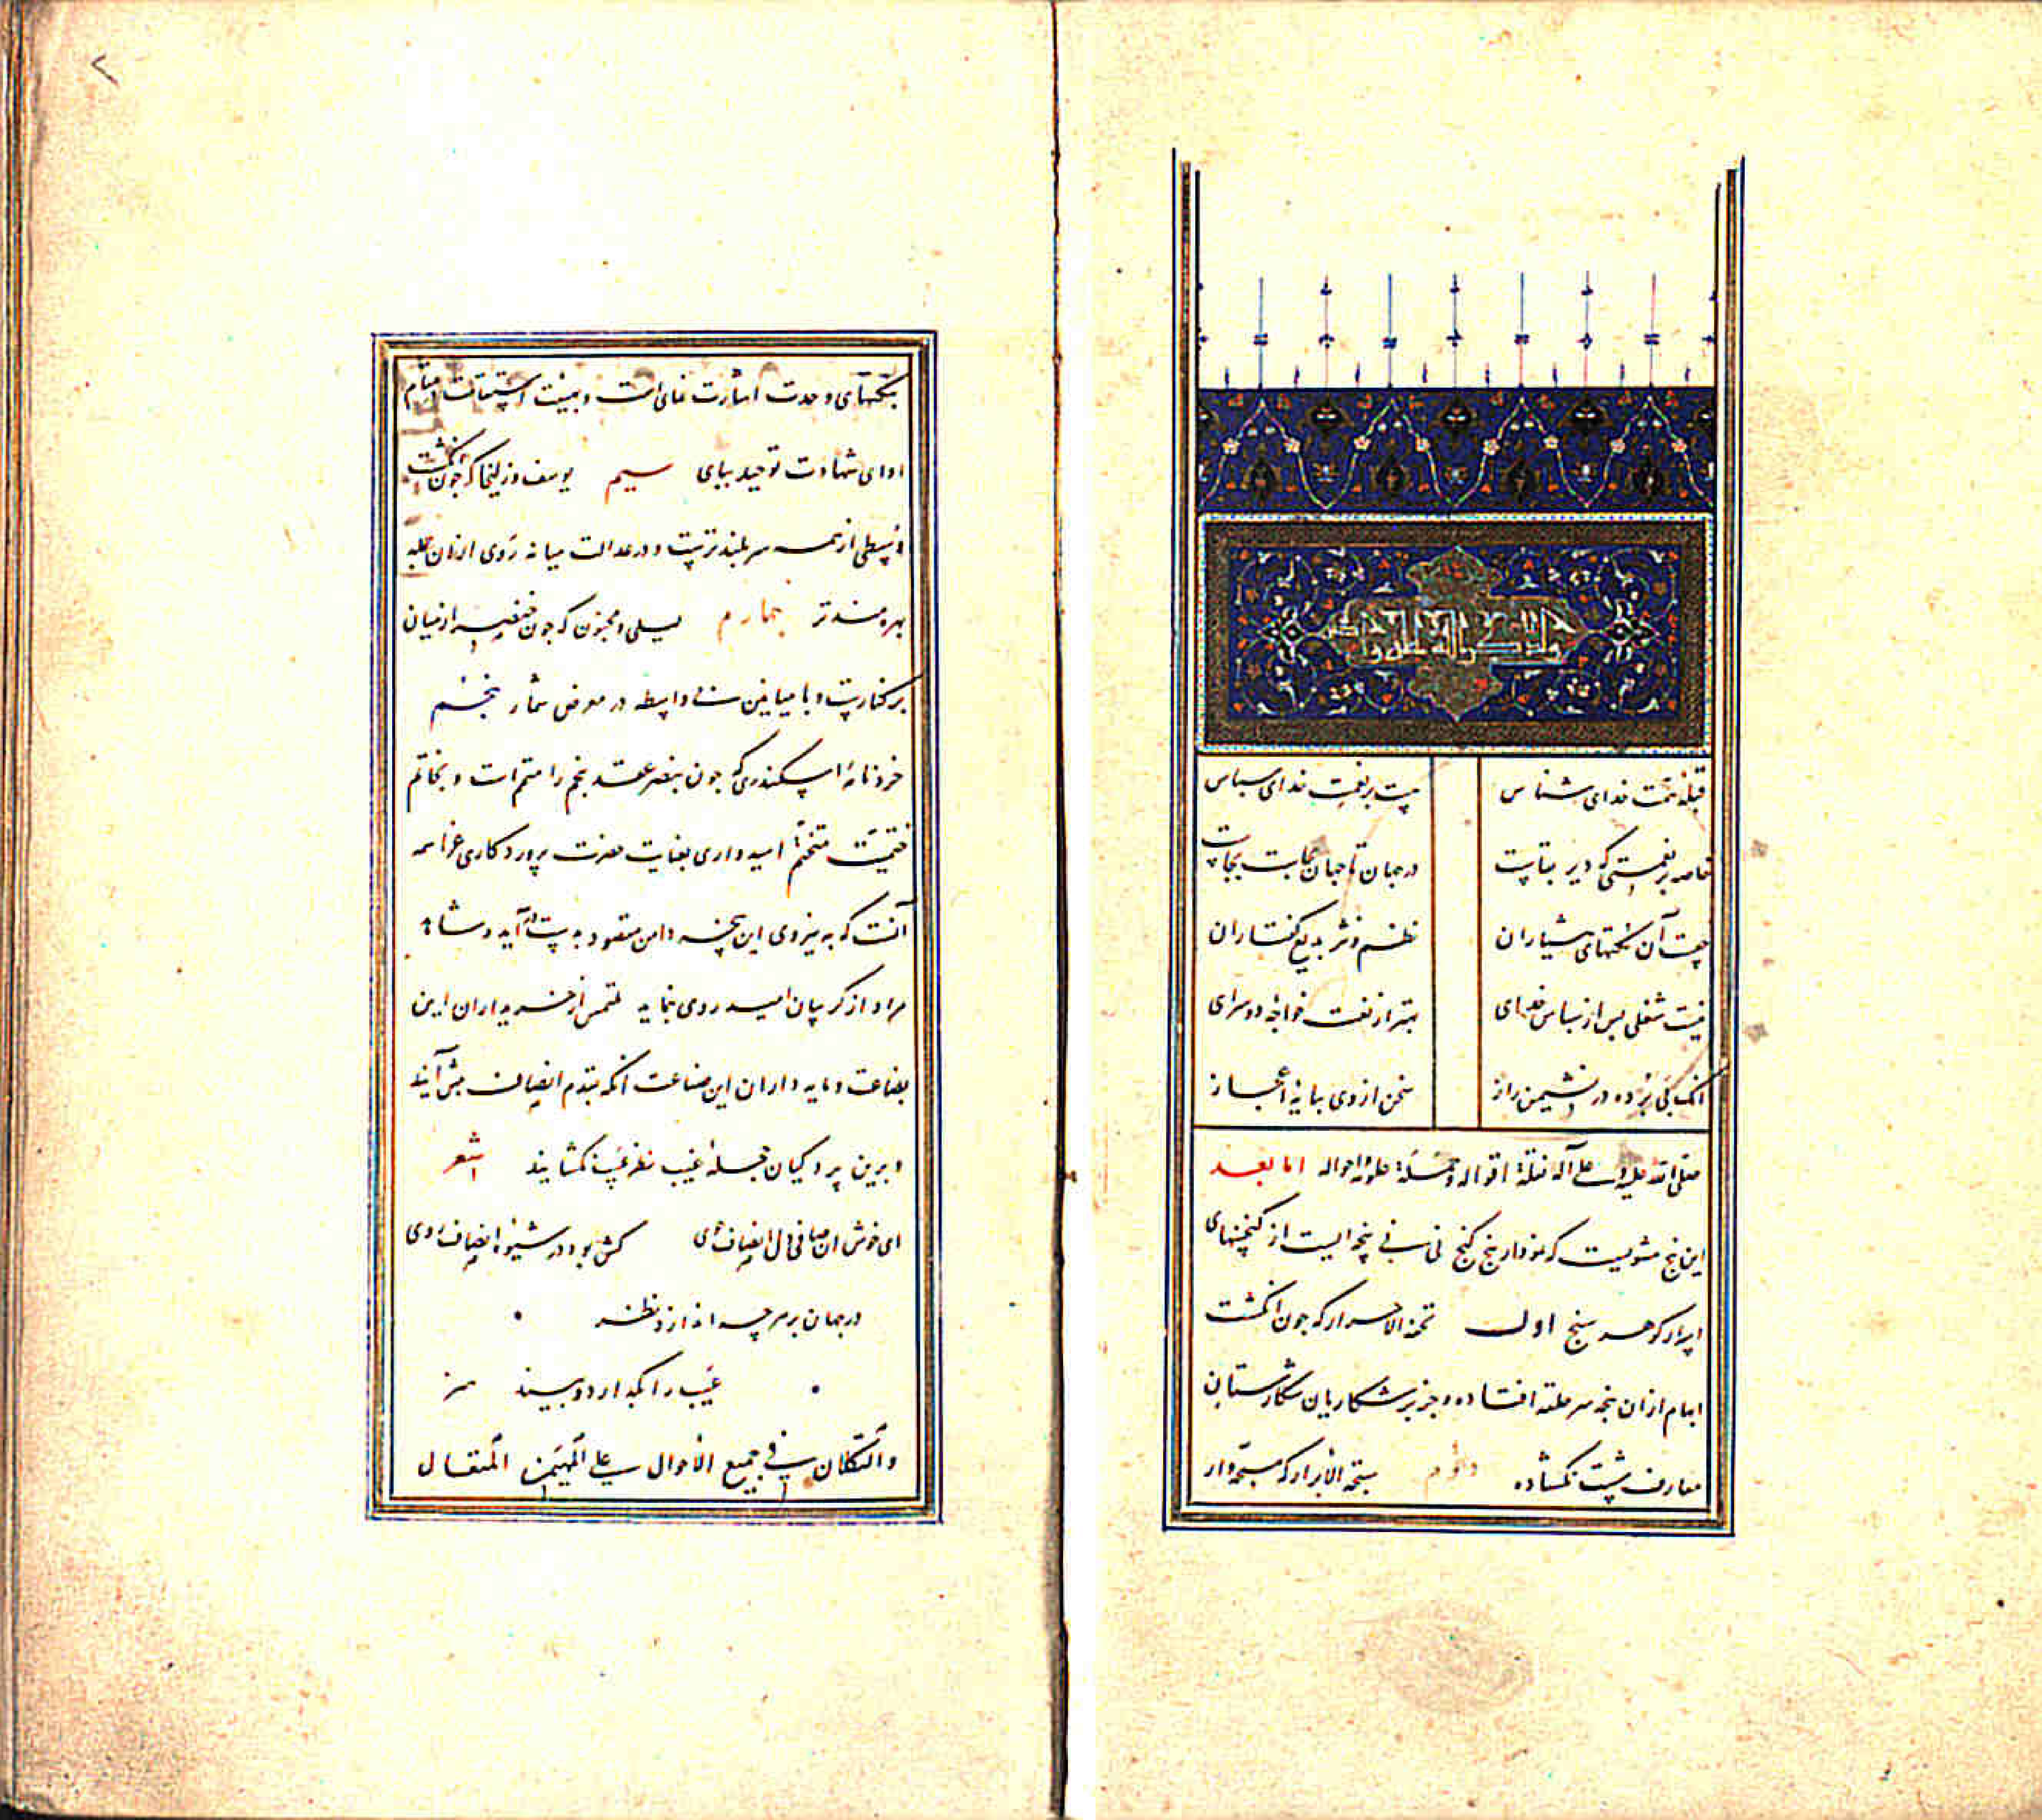 قبله همت خدای شناس نیست بر نعمت خدای سپاس
خاصه بر نعمتی که دیر بقاست در جهان تا جهان بجاست بجاست
چیست آن نکتهای هشیاران نظم و نثر بدیع گفتاران
نیست شغلی پس از سپاس خدای بهتر از نعت خواجه دو سرای
انکه پی برده در نشیمن راز سخن از وی بپایه اعجاز
صلی الله علیه و علی آله اقواله و احواله اما بعد
این پنج مثنویست که نمودار پنج گنج نی نی پنجه ایست از گنجینهای
اسرار کوهر سنج اول تحفة الاحرار که چون انکشت
ابهام ازان پنجه سر حلقه افتاده و جز بر شکاریان شکارستان
معارف شست نکشاده دوم سبحة الابرار که مسبحه وار
بنکتهای وحدت اشارت نمای است و بهیئت استقامت
ادای شهادت توحید بپای سیم یوسف و زلیخا که چون انکشت
وسطی از همه سر بلندترست و در عدالت میانه روی ازان جمله
بهره مندتر چهارم لیلی و مجنون که چون خنصر از میان
بر کنارست و با میامین بی واسطه در معرض شمار پنجم
خردنامهٔ اسکندری که چون بنصر عقد پنجم را متمم است و بخاتم
ختمیت متختم امیدواری بعنایت حضرت پروردکاری عز اسمه
آنست که به نیروی این پنجه دامن مقصود بدست آید و شاهد
مراد از کریبان امید روی نماید ملتمس از خریداران این
بضاعت و مایه داران این صناعت انکه بقدم انصاف پیش آیند
و برین پردکیان حجلهٔ غیب نظر عیب نکشایند شعر
ای خوش ان صافی دل انصاف جوی کش بود در شیوهٔ انصاف روی
در جهان بر هر چه اندازد نظر
عیب را بکذارد و بیند هنر
والتکلان فی جمیع الأحوال علی المهیمن المتعال